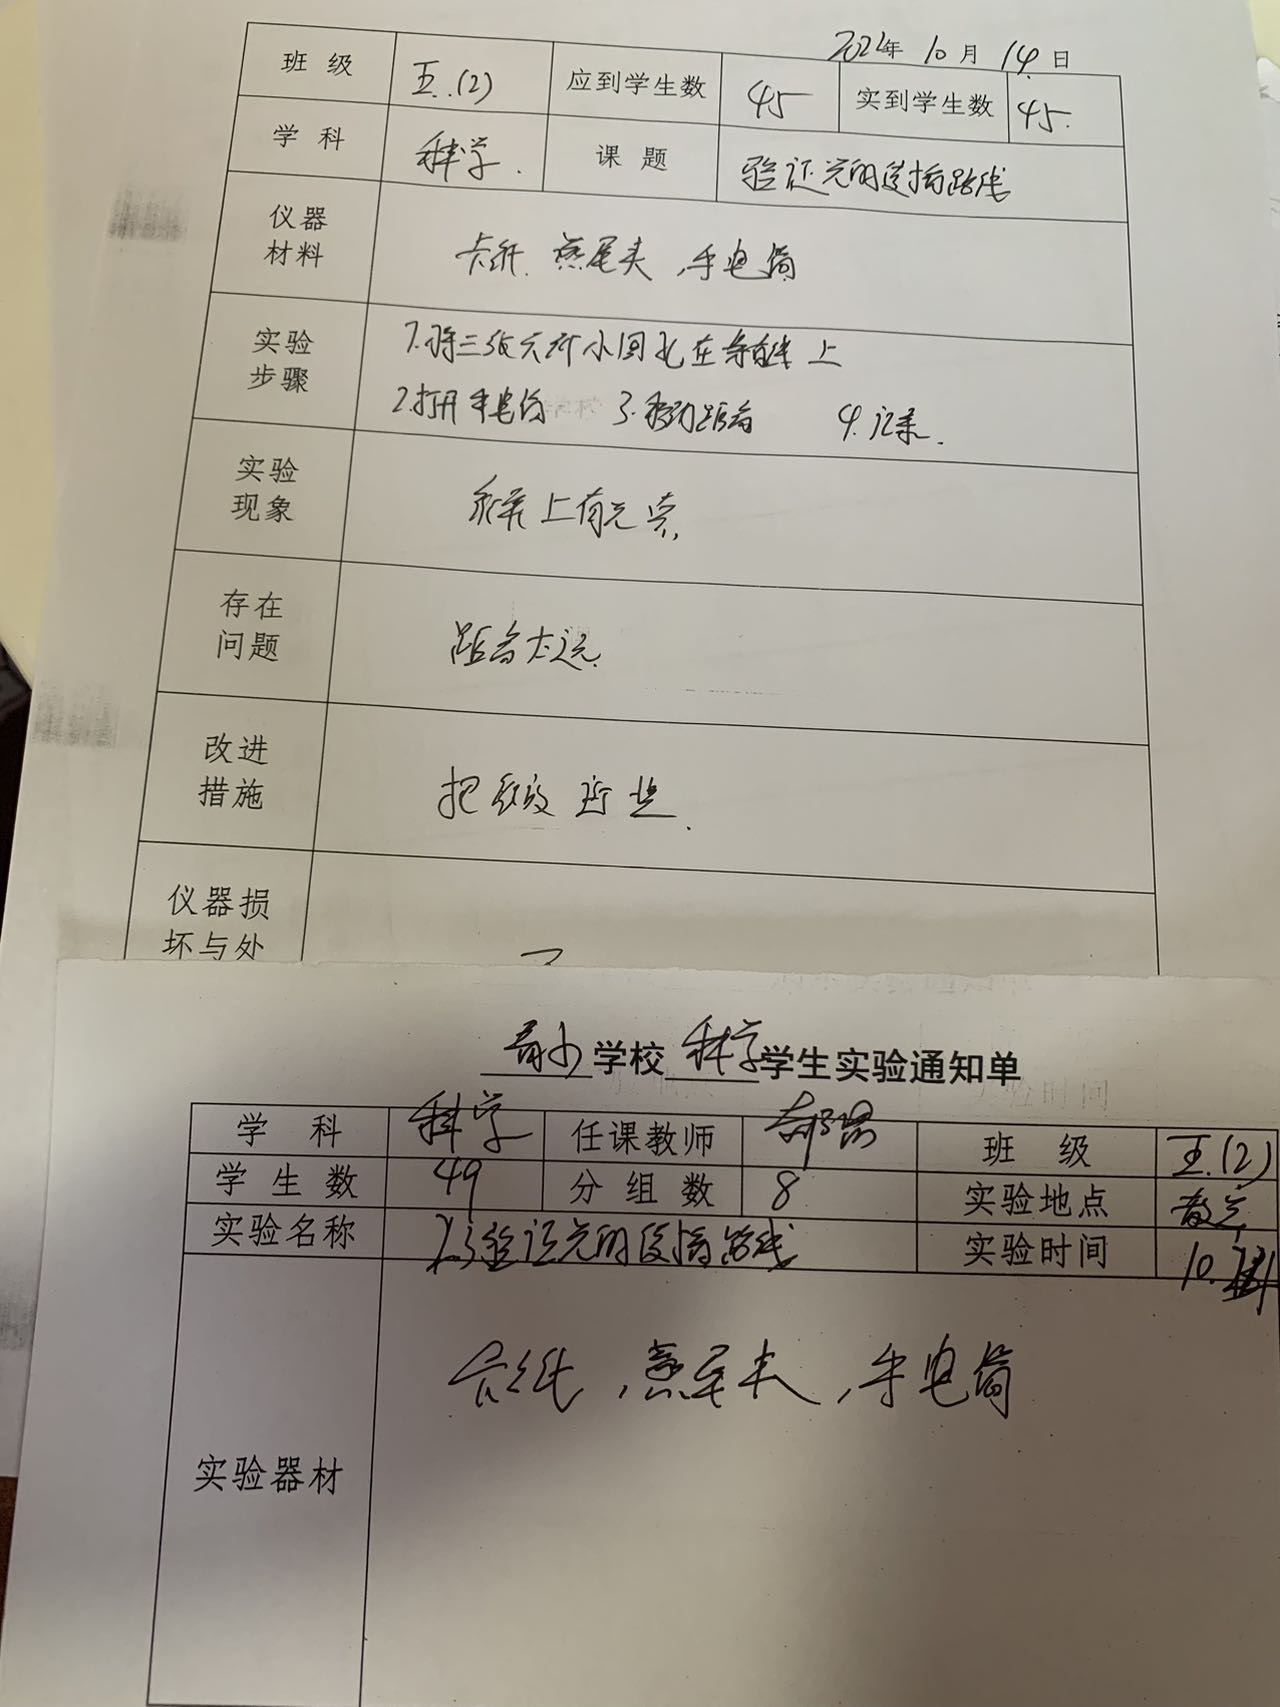 2022年 10月 14.日
班 级 五.(2) 应到学生数 45 实到学生数 45.
学 科 科学. 课 题 验证光的传播路线
仪器
材料
卡纸、燕尾夹,手电筒
实验
步骤
1.将三张卡片小圆孔在等直线上
2.打开手电筒 3.移动距离 4.记录.
实验
现象
纸屏上有光点,
存在
问题
距离太远.
改进
措施
把 近些.
仪器损
坏与处
学校 科学 学生实验通知单
学 科 科学 任课教师 班 级 五.(2)
学 生 数 49 分 组 数 8 实验地点
实验名称 验证光的传播路线 实验时间 10.
实验器材 卡纸,燕尾夹,手电筒